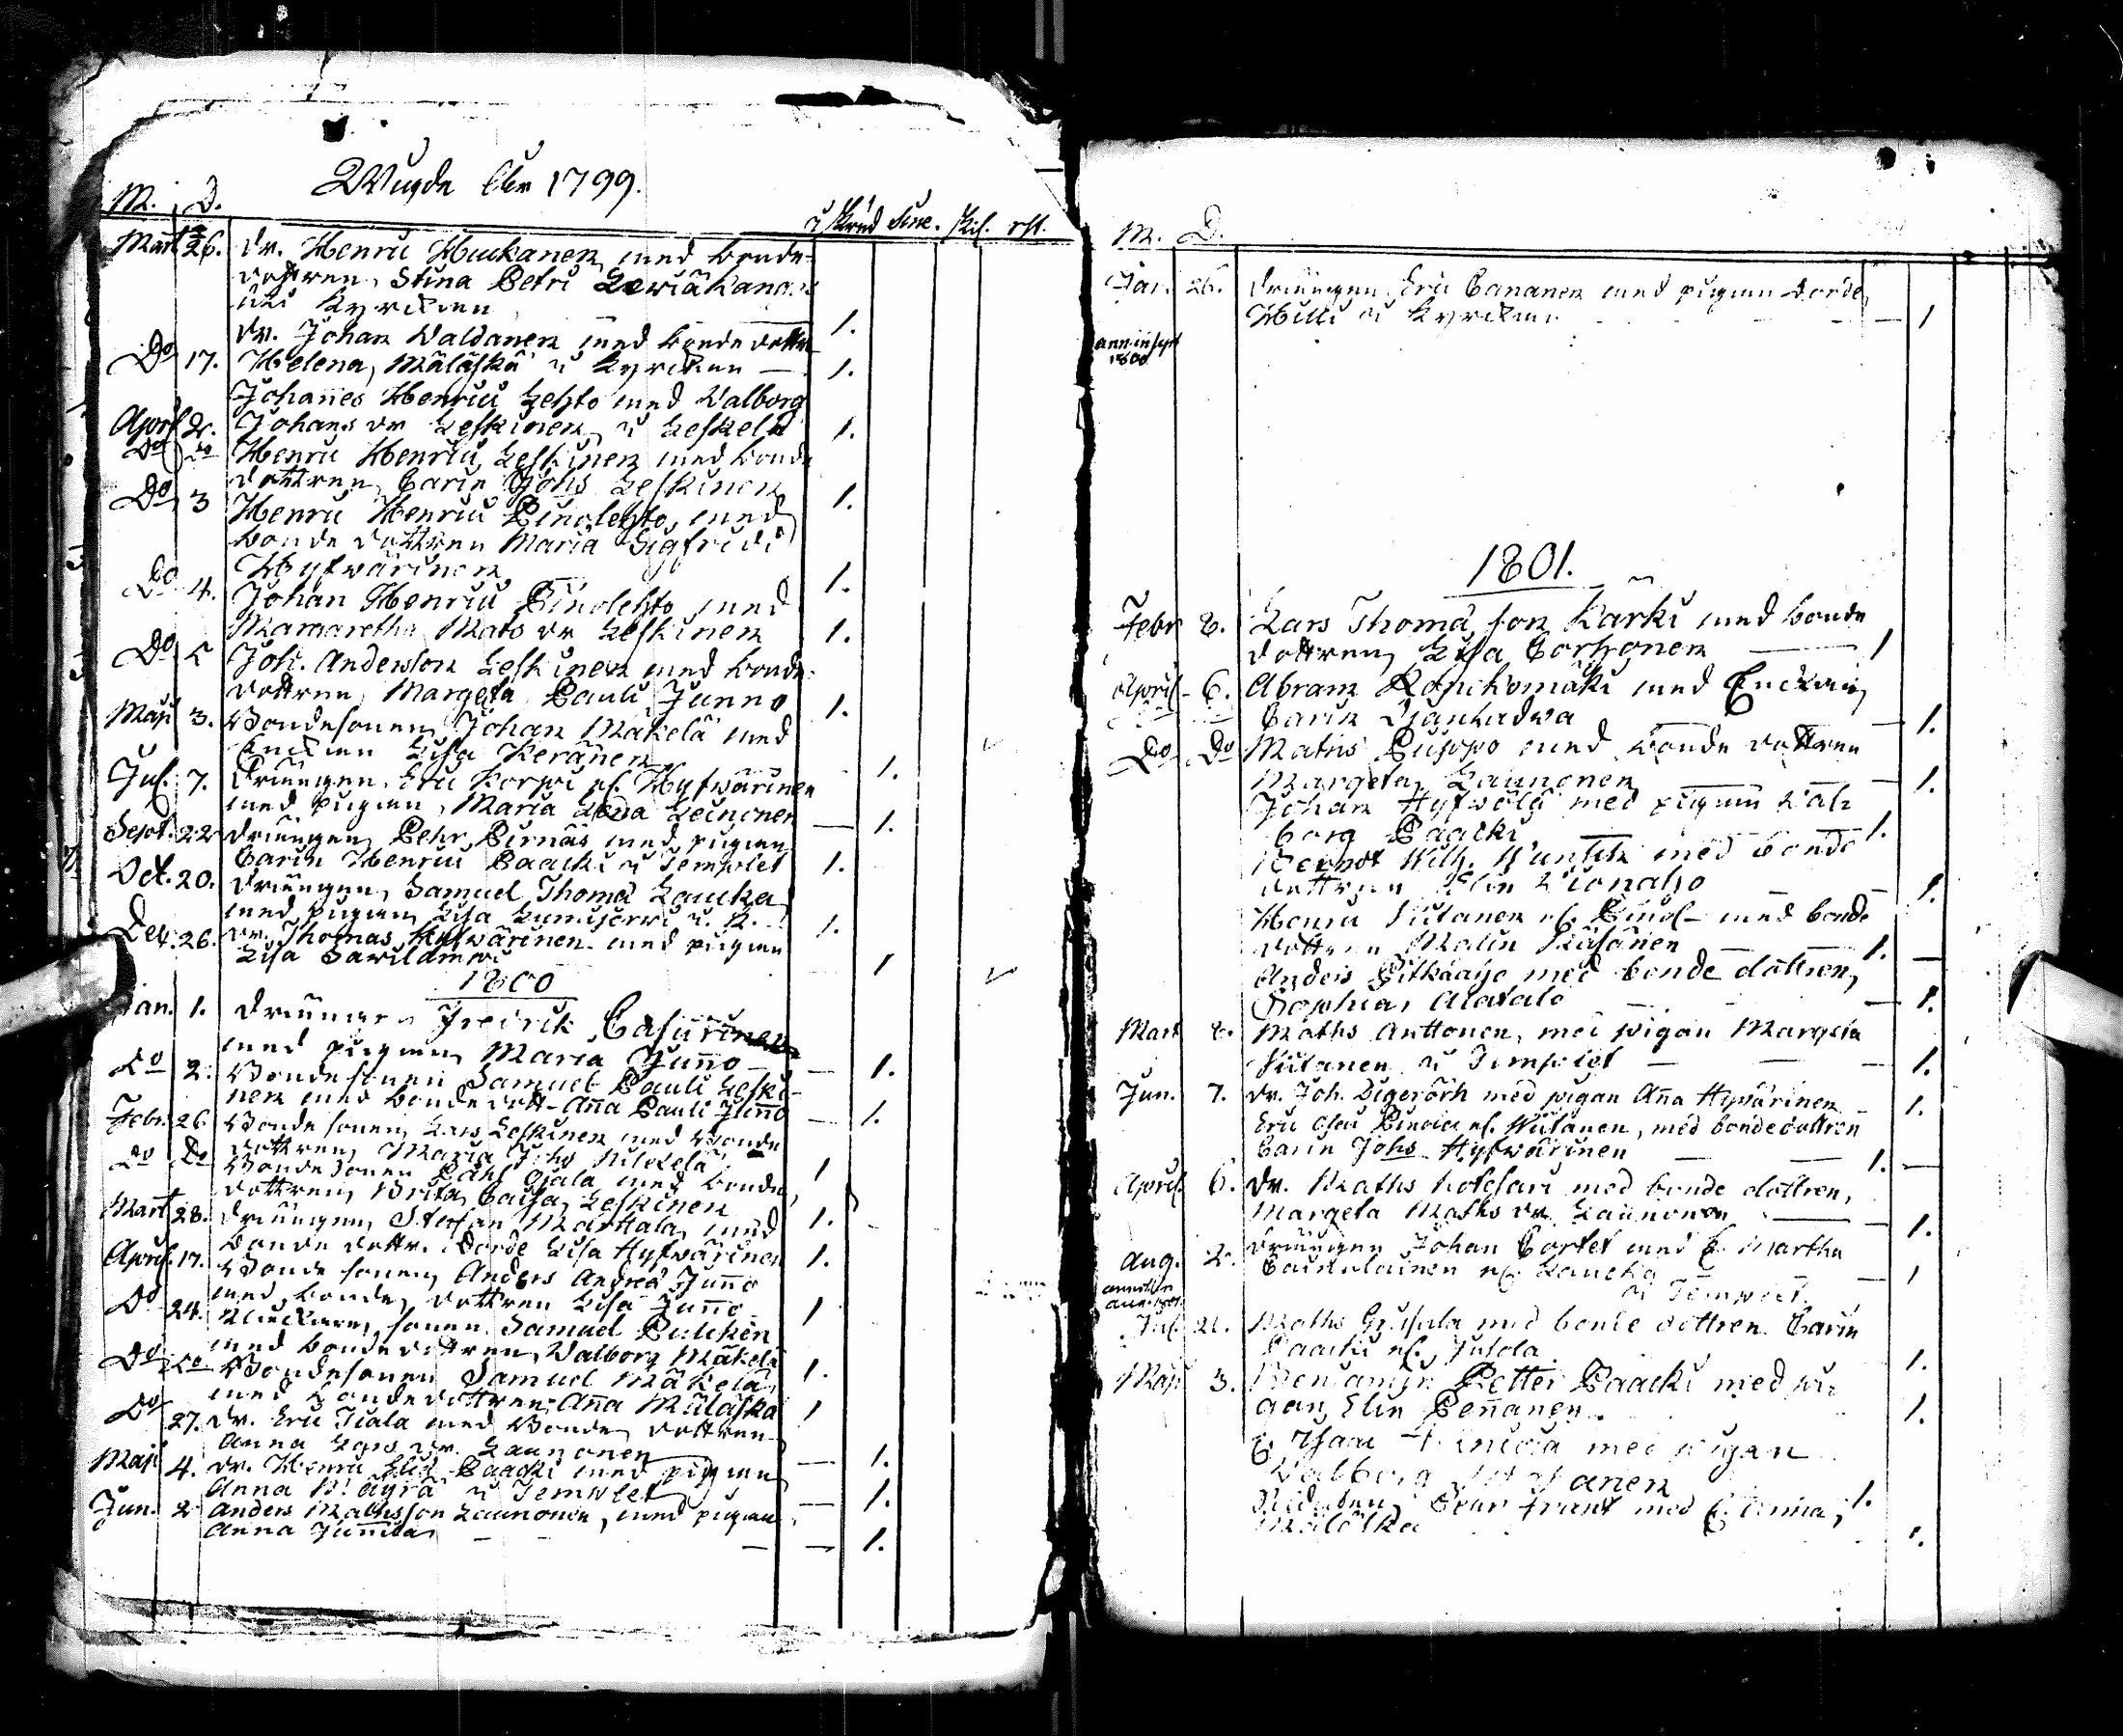 Wigde åhr 1799.
M. D. i skrud sine. skil. rst.
Mart 26. Dr. Henric Huckanen med bonde-
dottren Stina Petri Lewiäkangas
uti Kyrckan 1.
Dr. Johan Waldanen med bonde dottr
Do 17. Helena Mäläskä i Kyrckan — 1.
Johannes Henrici Lehto med Walborg
April 2. Johans dr Leskinen i Leskelä 1.
Do Do Henric Henrici Leskinen med bonde
dottren Carin Johs Leskinen 1.
Do 3 Henric Henrici Pinolehto med
bonde dottren Maria Sigfrids
Hyfwärinen 1.
Do 4. Johan Henrici Pinolehto med
Margaretha Mats dr Leskinen 1.
Do 5 Joh. Andersson Leskinen med bonde
dottren Margeta Pauli Junno 1.
Maji 3. Bondesonen Johan Mäkelä med
Enckan Lisa Keränen 1.
Jul. 7. Drängen Eric Korpi nf. Hyfwärinen
med pigan Maria Lena Leinonen — 1.
Sept. 22 Drängen Pehr Pirnäs med pigan
Carin Henrici Paacki i Templet 1.
Oct. 20. Drängen Samuel Thomæ Laucka
med pigan Lisa Lumijerwi i K. 1.
Dec. 26. Dr. Thomas Hyfwärinen med pigan
Lisa Sawilampi 1
1800
Jan. 1. Drängen Fredrik Casurinen
med pigan Maria Junno — 1.
Do 2. Bondesonen Samuel Pauli Leski-
nen med bonde dott- Anna Pauli Junno — 1.
Febr. 26 Bonde sonen Lars Leskinen med Bonde
dottren Maria Johs 1
Do Do Bonde sonen Påhl Ojala med bonde
dottren Brita Caisa Leskinen 1.
Mart 28. Drängen Stephan Marttala med
bonde dottr. Dorde Lisa Hyfwärinen 1.
April. 17. Bonde sonen Anders Andreæ Junno
med bonde dottren Lisa Junno 1
Do 24. sonen Samuel Pulckin
med bondedottren Walborg Mäkelä 1.
Do Do Bondesonen Samuel Mäkelä
med bondedottren Anna Mäläskä 1
Do 27. Dr. Eric Tiala med Bonde dottren
Anna Lars dr. Launonen — 1.
Maji 4. Dr. Henric Eliæ Paacki med pigan
Anna Mäyrä i Templet — 1.
Jun. 2 Anders Mathsson Launonen, med pigan
Anna Junnila — — 1.
M. D.
Jan. 26. Drängen Eric Cananen med pigan Dorde
Hilli i Kyrckan — 1
1800
1801.
Febr 8. Lars Thomæ son Kärki med bonde
dottren Lisa Corhonen — 1
April 6. Abram Kopickomäki med Enckan
Carin — 1.
Do Do Maths Puippo med bonde dottren
Margeta Launonen — 1.
Johan Hyfwölä med pigan Wal-
borg Paacki 1.
Berndt Wilh. med bonde
dottren Elin — 1.
Henric Siitanen nf. Pinol- med bonde
dottren Malin Räsänen — 1.
Anders Pitkäaijo med bonde dottren
Sophia Alatalo — 1.
Mart 8. Maths Anttonen, med pigan Margeta
Siitanen i Templet — 1.
Jun. 7. Dr. Joh. Digerörh med pigan Anna Hyvärinen 1.
Eric Olai nf. Niitanen, med bondedottren
Carin Johs Hyfwärinen — 1.
April. 6. Dr. Maths Kotesari med bonde dottren,
Margeta Maths dr. Launonen — 1.
Aug. 2. Drängen Johan Cortet med E. Martha
nf. Laucka — 1
i Templet.
Jul. 21. Maths Grekula med bonde dottren Carin
Paacki nf. Jutola 1.
Maji 3. Benjamin Petter Paacki med pi-
gan Elin Pennanen 1.
E. Isaac med pigan
Walborg 1.
Pehr Frant med E. Anna
Mäläskä 1.